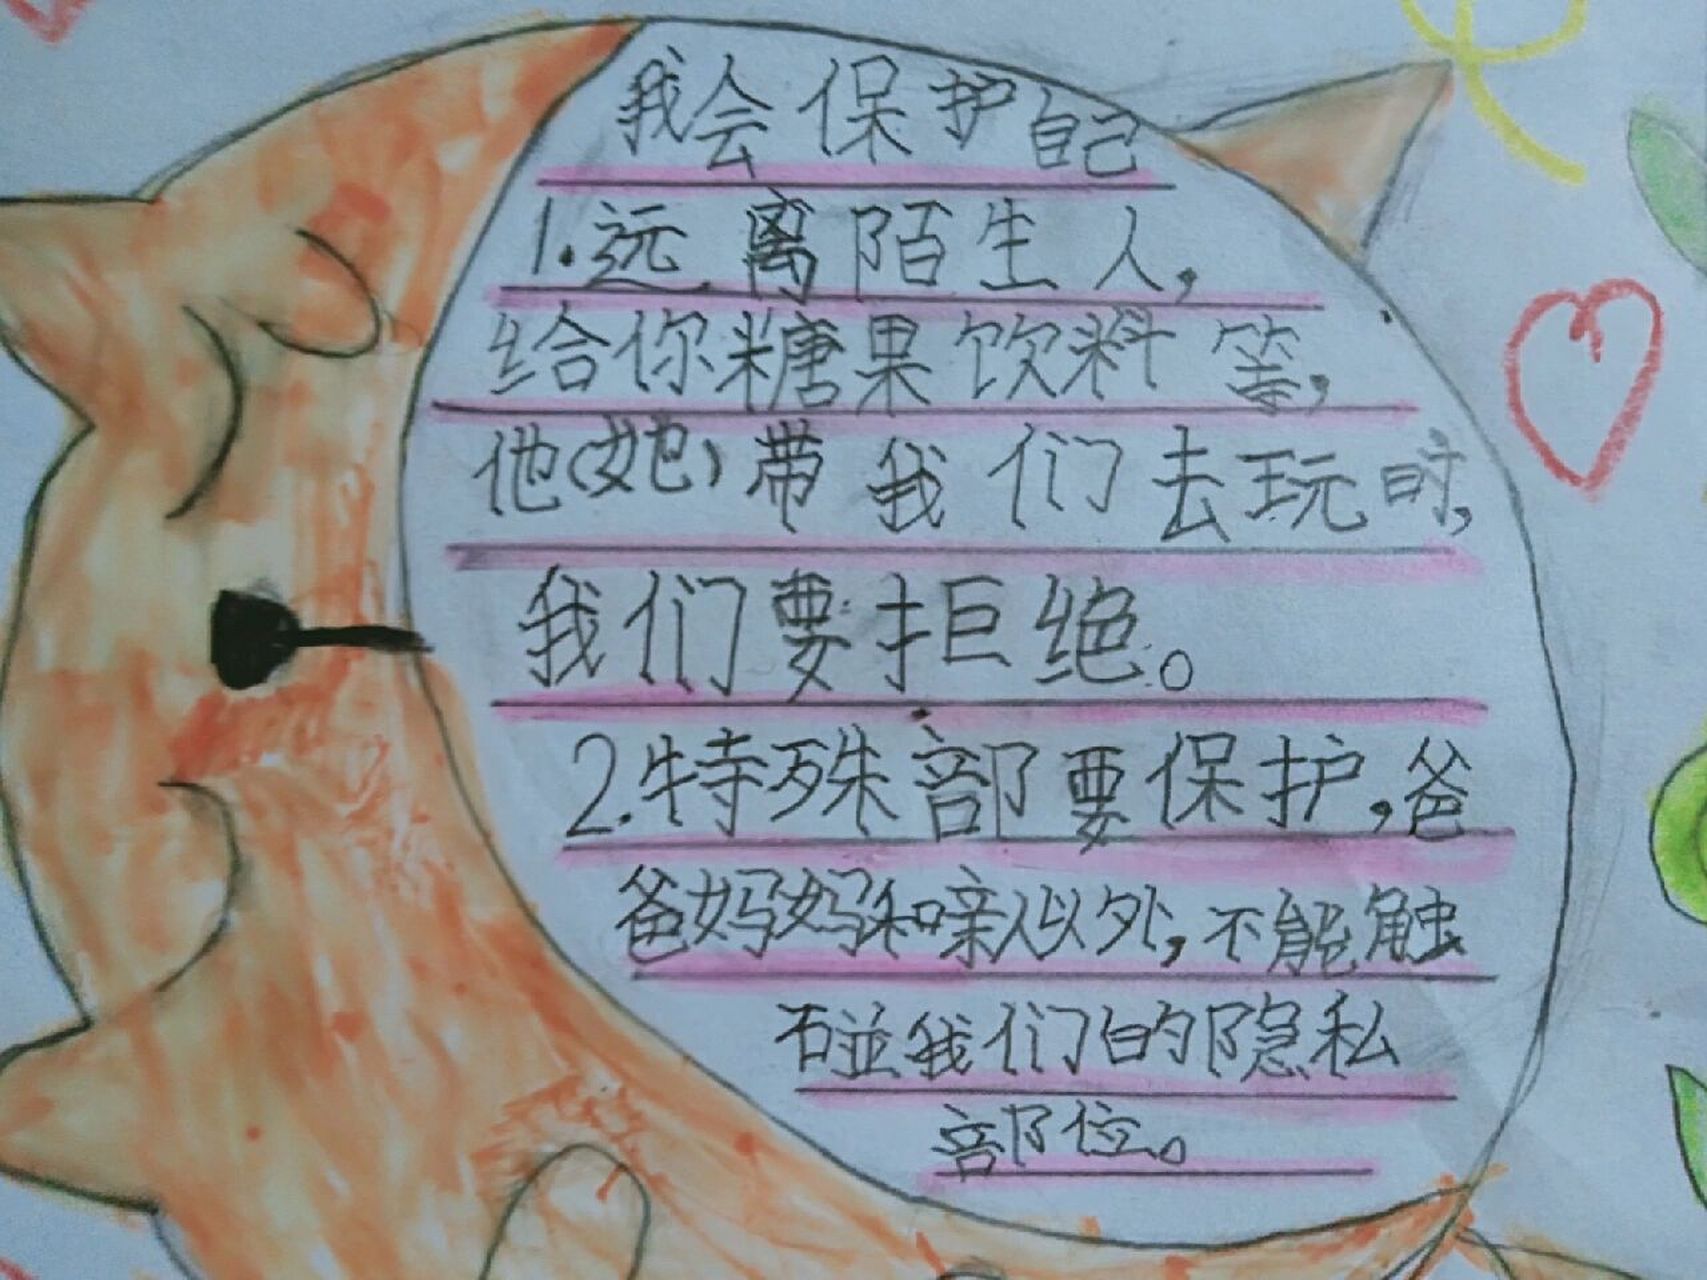 我会保护自己
1.远离陌生人,
给你糖果饮料等,
他(她)带我们去玩时,
我们要拒绝。
2.特殊部要保护,爸
爸妈妈和亲人以外,不能触
碰我们的隐私
部位。